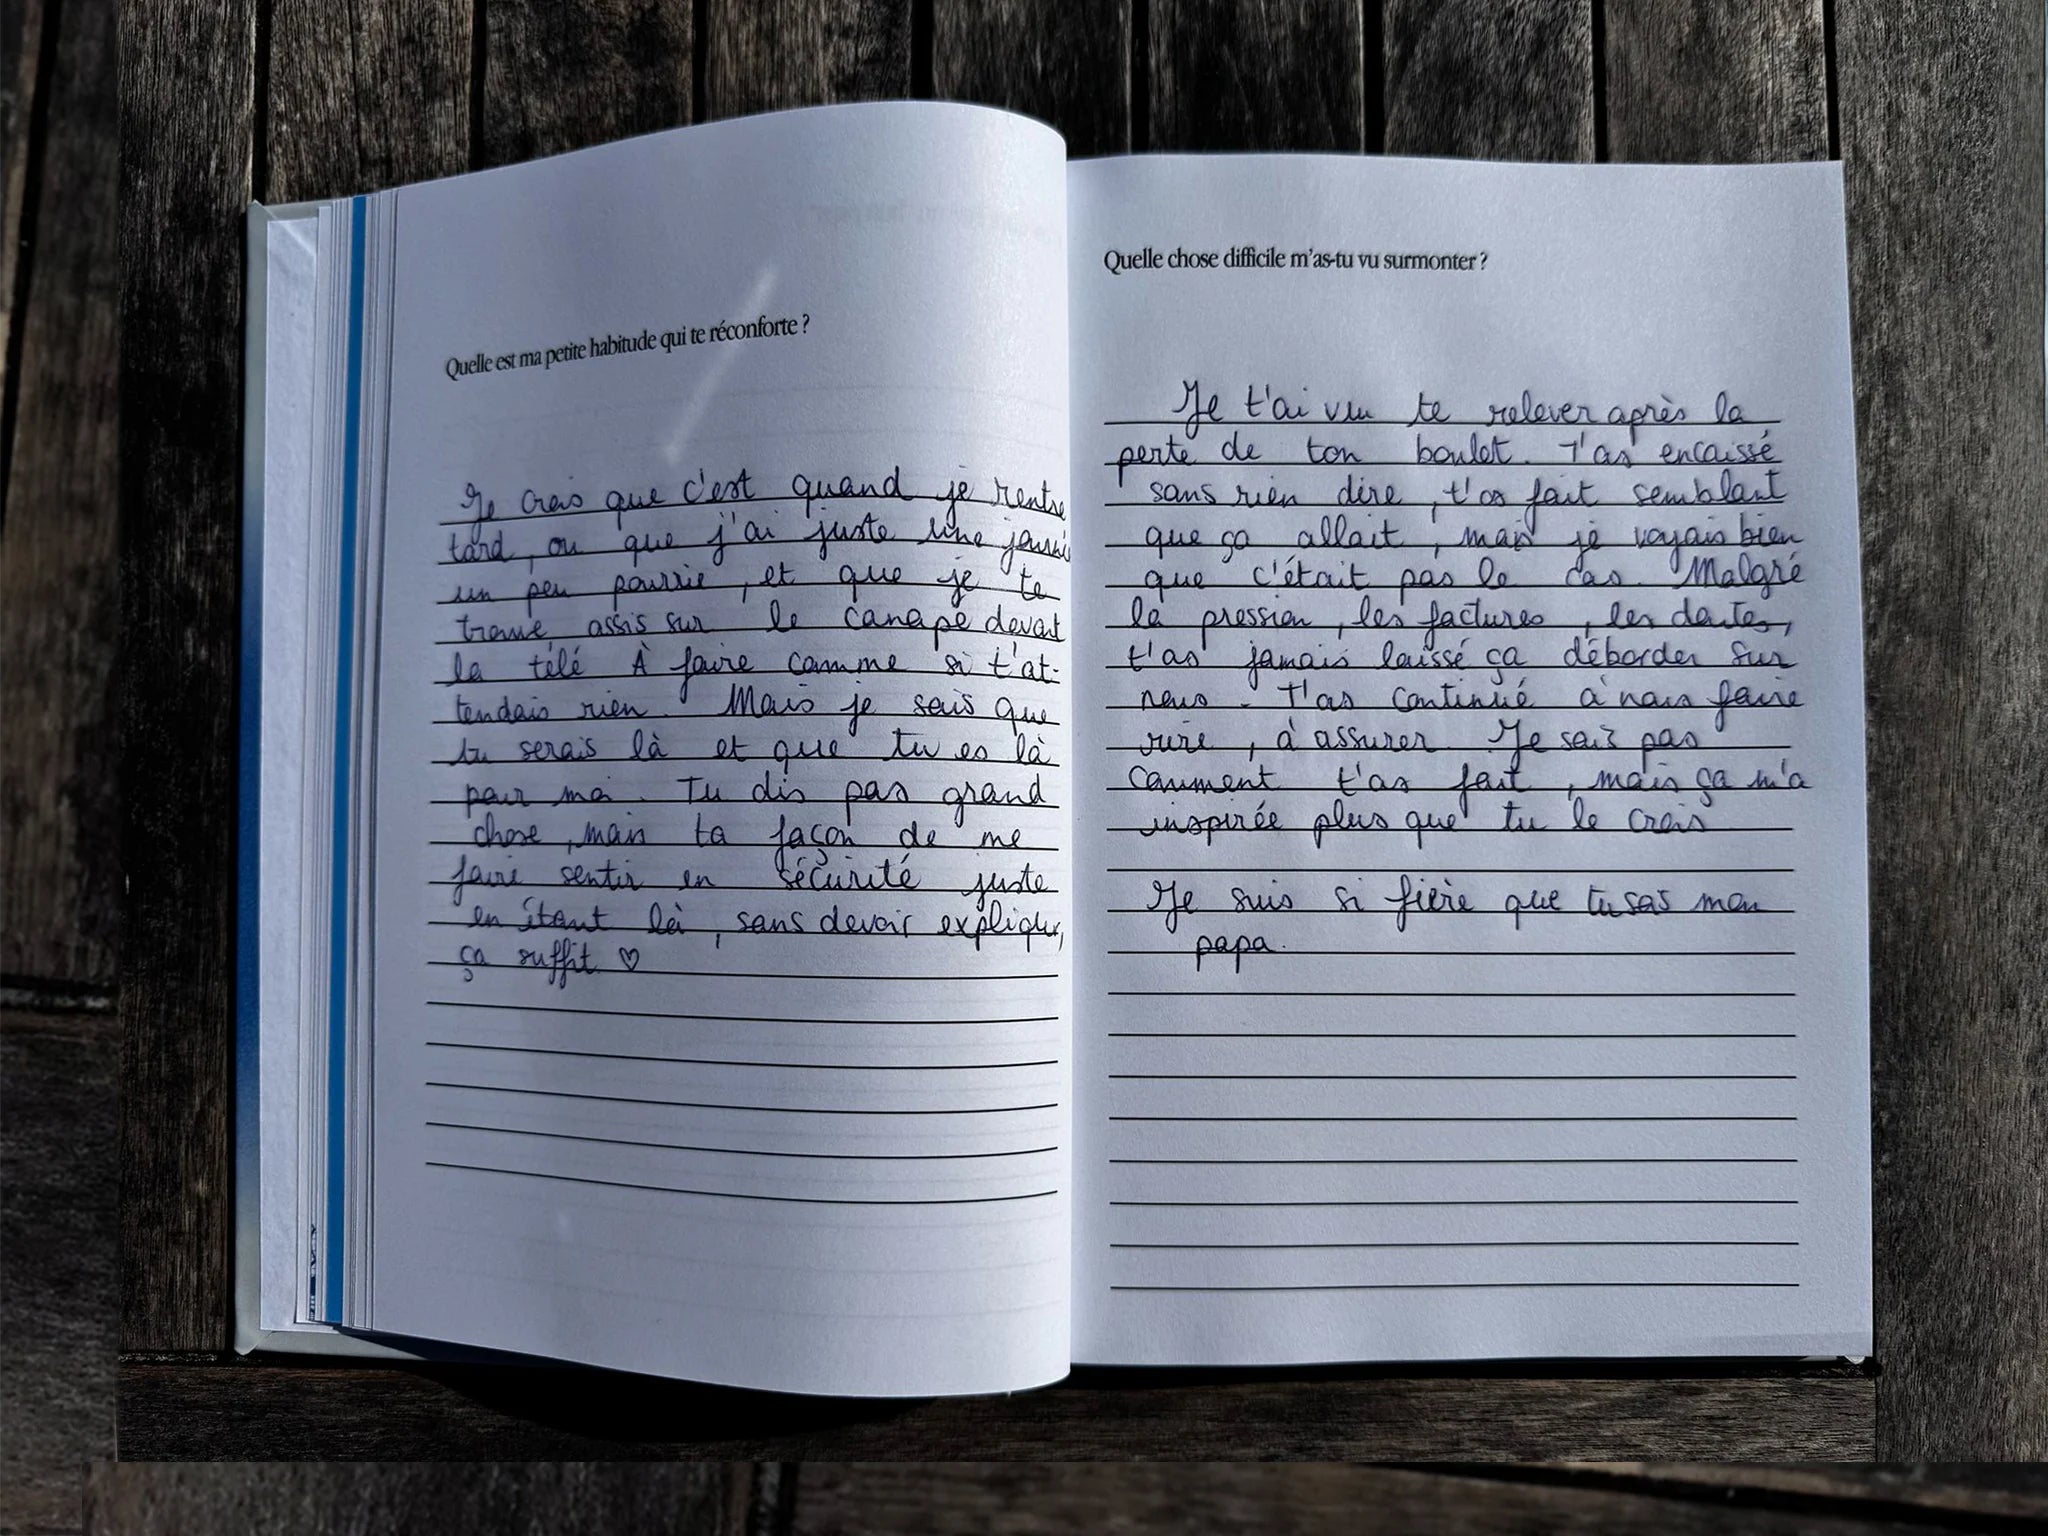 Quelle est ma petite habitude qui te réconforte ?
Je crois que c'est quand je rentre
tard, ou que j'ai juste une journée
un peu pourrie, et que je te
trouve assis sur le canapé devant
la télé À faire comme si t'at-
tendais rien. Mais je sais que
tu serais là et que tu es là
pour moi. Tu dis pas grand
chose, mais ta façon de me
faire sentir en sécurité juste
en étant là, sans devoir expliquer,
ça suffit ♡
Quelle chose difficile m'as-tu vu surmonter ?
Je t'ai vu te relever après la
perte de ton boulot. T'as encaissé
sans rien dire, t'as fait semblant
que ça allait, mais je voyais bien
que c'était pas le cas. Malgré
la pression, les factures, les doutes,
t'as jamais laissé ça déborder sur
nous. T'as continué à nous faire
rire, à assurer. Je sais pas
comment t'as fait, mais ça m'a
inspirée plus que tu le crois
Je suis si fière que tu sois mon
papa.